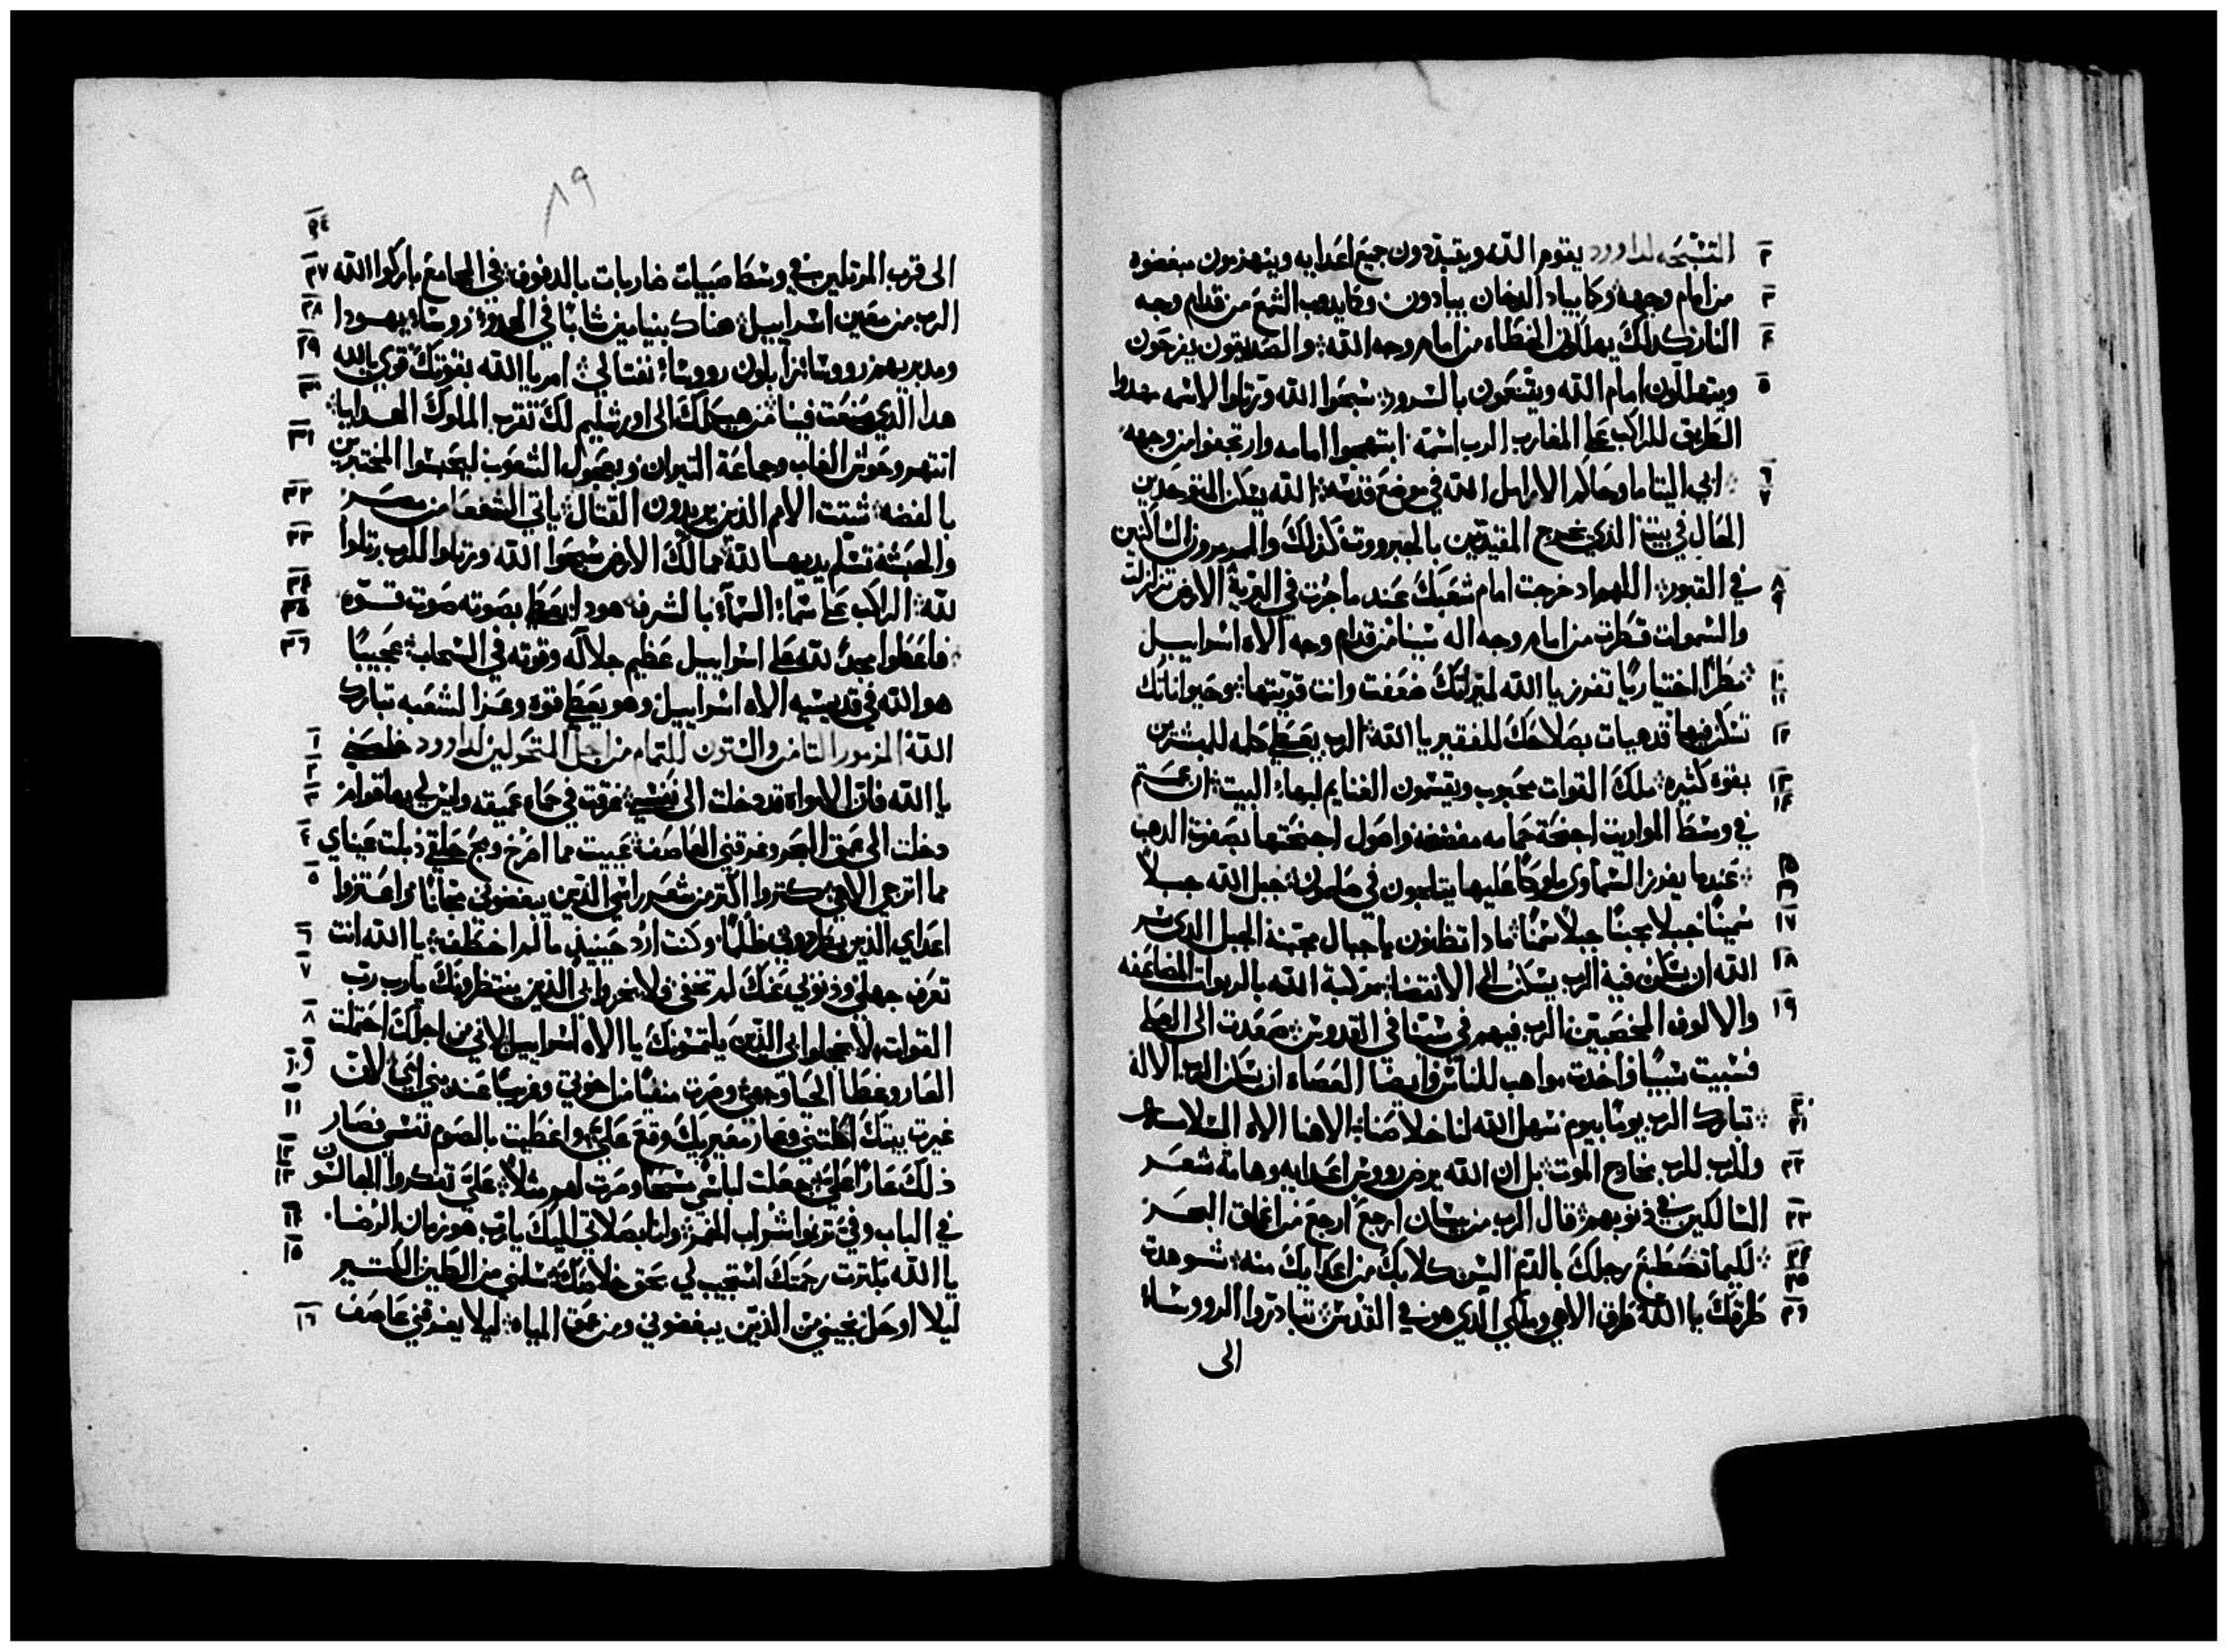 التسبحه لداوود يقوم الله ويتبددون جميع اعدايه وينهزمون مبغضوه
من امام وجهه وكما يباد الدخان يبادون وكما يدوب الشمع من قدام وجه
النار كدلك يهلكون الخطاه من امام وجه الله والصديقون يفرحون
ويتهللون امام الله ويتنعمون بالسرور سبحوا الله ورتلوا لاسمه مهدوا
الطريق للراكب على المغارب الرب اسمه ابتهجوا امامه وارتجفوا من وجهه
ابي اليتاما وحاكم الارامل الله في موضع قدسه الله يسكن المتوحدين
الحال في بيته الذي يخرج المقيدين بالجبرووت كذلك والمرمرون الساكنين
في القبور اللهم اد خرجت امام شعبك عند ما جزت في البرية الارض تزلزلت
والسموات قطرت من امام وجه اله سينا من قدام وجه الاه اسراييل
مطرًا اختياريًا تفرز يا الله لميراتك ضعفت وانت قويتها وحيواناتك
تسكن فيها قد هيات بصلاحك للفقير يا الله الرب يعطي كلمه للمبشرين
بقوه كثيره ملك القوات محبوب ويقسمون الغنايم لبهاء البيت ان نمتم
في وسط المواريت اجنحة حمامه مفضضه واصول اجنحتها بصفرة الدهب
عندما يفرز السماوي ملوكًا عليها يتلجون في صلمون جبل الله جبلاً
سمينًا جبلا مجبنًا جبلاً سمنًا مادا تظنون يا جبال مجبنة الجبل الدي سر
الله ان يسكن فيه الرب يسكن الى الانقضا مركبة الله بالربوات المضاعفه
والالوف المخصبين الرب فيهم في سينا في القدوس صعدت الى العلى
فسبيت سبيًا واخدت مواهب للناس وايضا العصاه ان يسكن الرب الاله
تبارك الرب يومًا بيوم يسهل الله لنا خلاصنا الاهنا الاه
وللرب للرب مخارج الموت بل ان الله يرض رووس اعدايه وهامة شعر
السالكين في ذنوبهم قال الرب من بيسان ارجع ارجع من اعماق البحر
لكيما تصطبغ رجلك بالدم السن كلابك من اعدايك منه شوهدت
طرقك يا الله طرق الاهي وملكي الدي هو في القدس تبادروا الرووساء
الى
٨٩
الى قرب المرتلين في وسط صبيات ضاربات بالدفوف في المجامع باركوا الله
الرب من معين اسراييل هناك بنيامين شابًا في الحدوة روساء يهودا
ومدبريهم رووساء زابلون رووساء نفتالي امر يا الله بقوتك قوي يا الله
هدا الذي صنعت فينا من هيكلك الى اورشليم لك تقرب الملوك الهدايا
انتهر وحوش الغاب وجماعة التيران وعجول الشعوب ليحبسوا المختبرين
بالفضه شتت الامم الذين يريدون القتال ياتي الشفعا من مصر
والحبشة تسلم يديها لله ممالك الارض سبحوا الله ورتلوا للرب رتلوا
لله الراكب على سماء السماء بالشرق هودا يعطي بصوته صوت قوه
فاعطوا مجدً لله على اسراييل عظيم جلاله وقوته في السحاب عجيبًا
هو الله في قديسيه الاه اسراييل وهو يعطي قوه وعزا لشعبه تبارك
الله المزمور التامن والستون للتمام من اجل المتحولين لداوود خلصني
يا الله فان الامواه قد دخلت الى نفسي غرقت في حماه عميقه وليس لي بها قوام
دخلت الى عمق البحر وغرقني العاصف عييت مما اصرخ وبح حلقي ذبلت عيناي
مما اترجى الاهي كتروا اكثر من شعر راسي الذين يبغضوني مجانًا واعتزوا
اعداي الذين يطردوني ظلمًا وكنت ارد حينيذٍ ما لم اخطف يا الله انت
تعرف جهلي وذنوبي عنك لم تخفى فلا يخزوا بي الذين ينتظرونك يا رب رب
القوات ولا يخجلوا بي الذين يلتمسونك يا الاه اسراييل لاني من اجلك احتملت
العار وغطا الحيا وجهي وصرت منفيًا من اخوتي وغريبًا عند بني امي لان
غيرت بيتك اكلتني وعار معيريك وقع علي واغطيت بالصوم نفسي فصار
ذلك عارًا علي وجعلت لباسي مسحًا وصرت لهم مثلاً علي تفكروا الجالسون
في الباب وفي ترنموا شراب الخمر وانا بصلاتي اليك يا رب هو زمان الرضا
يا الله بكثرت رحمتك استجيب لي بحق خلاصك نسلني من الطين الكتير
ليلا اوحل نجيني من الذين يبغضوني ومن عمق المياه ليلا يغرقني عاصف